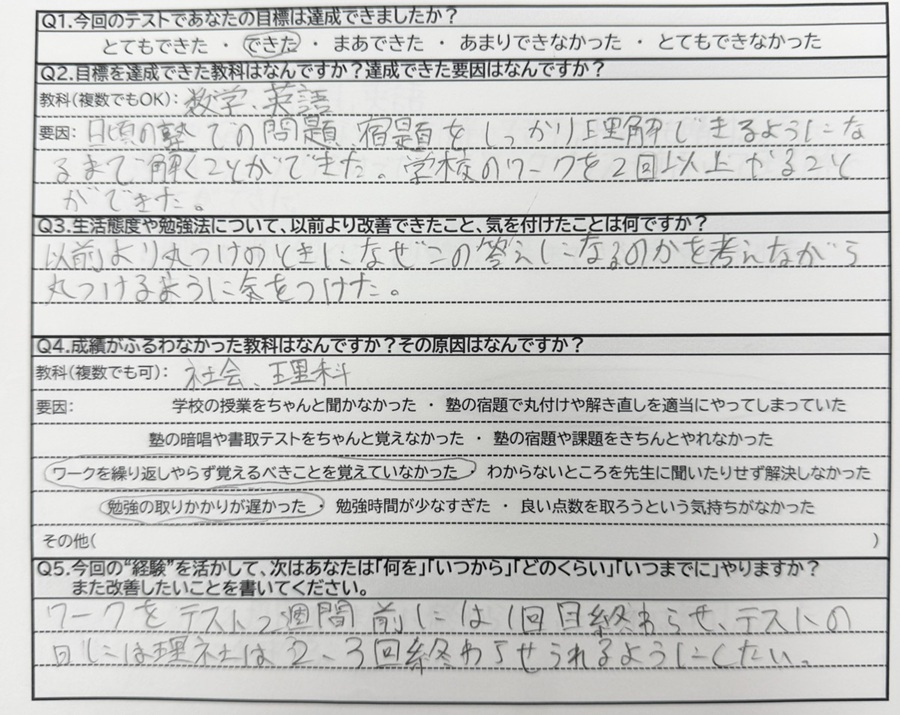 Q1.今回のテストであなたの目標は達成できましたか？
とてもできた ・ できた ・ まあできた ・ あまりできなかった ・ とてもできなかった
Q2.目標を達成できた教科はなんですか？達成できた要因はなんですか？
教科(複数でもOK)： 数学、英語
要因： 日頃の塾での問題、宿題をしっかり理解できるようにな
るまで解くことができた。学校のワークを2回以上やること
ができた。
Q3.生活態度や勉強法について、以前より改善できたこと、気を付けたことは何ですか？
以前より丸つけのときになぜこの答えになるのかを考えながら
丸つけるように気をつけた。
Q4.成績がふるわなかった教科はなんですか？その原因はなんですか？
教科(複数でも可)： 社会、理科
要因： 学校の授業をちゃんと聞かなかった ・ 塾の宿題で丸付けや解き直しを適当にやってしまっていた
塾の暗唱や書取テストをちゃんと覚えなかった ・ 塾の宿題や課題をきちんとやれなかった
ワークを繰り返しやらず覚えるべきことを覚えていなかった ・ わからないところを先生に聞いたりせず解決しなかった
勉強の取りかかりが遅かった ・ 勉強時間が少なすぎた ・ 良い点数を取ろうという気持ちがなかった
その他( )
Q5.今回の“経験”を活かして、次はあなたは「何を」「いつから」「どのくらい」「いつまでに」やりますか？
また改善したいことを書いてください。
ワークをテスト2週間前には1回目終わらせ、テストの
日には理社は2、3回終わらせられるようにしたい。